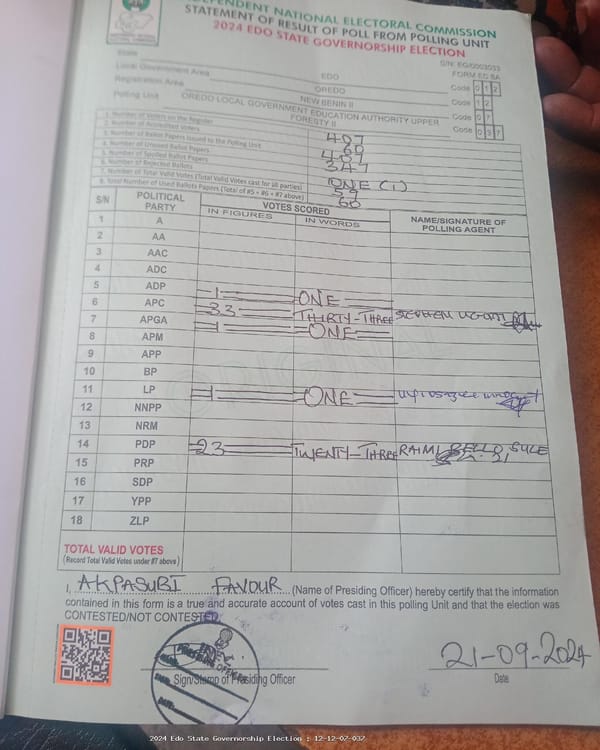 INDEPENDENT NATIONAL ELECTORAL COMMISSION
STATEMENT OF RESULT OF POLL FROM POLLING UNIT
2024 EDO STATE GOVERNORSHIP ELECTION
S/N: EG/0003033
FORM EC 8A
State EDO Code 0 1 2
Local Government Area OREDO Code 1 2
Registration Area NEW BENIN II Code 0 7
Polling Unit OREDO LOCAL GOVERNMENT EDUCATION AUTHORITY UPPER FORESTY II Code 0 3 7
1. Number of Voters on the Register 407
2. Number of Accredited Voters 60
3. Number of Ballot Papers Issued to the Polling Unit 407
4. Number of Unused Ballot Papers 347
5. Number of Spoiled Ballot Papers
6. Number of Rejected Ballots ONE (1)
7. Number of Total Valid Votes (Total Valid Votes cast for all parties) 59
8. Total Number of Used Ballots Papers (Total of #5 + #6 + #7 above) 60
S/N POLITICAL PARTY VOTES SCORED NAME/SIGNATURE OF POLLING AGENT
IN FIGURES IN WORDS
1 A
2 AA
3 AAC
4 ADC
5 ADP 1 ONE
6 APC 33 THIRTY-THREE
7 APGA 1 ONE
8 APM
9 APP
10 BP
11 LP 1 ONE
12 NNPP
13 NRM
14 PDP 23 TWENTY-THREE RAIMI BELLO SULE
15 PRP
16 SDP
17 YPP
18 ZLP
TOTAL VALID VOTES
(Record Total Valid Votes under #7 above)
I, AKPASUBI FAVOUR (Name of Presiding Officer) hereby certify that the information
contained in this form is a true and accurate account of votes cast in this polling Unit and that the election was
CONTESTED/NOT CONTESTED.
INEC
PRESIDING OFFICER
21-09-2024
Sign/Stamp of Presiding Officer Date
2024 Edo State Governorship Election : 12-12-07-037